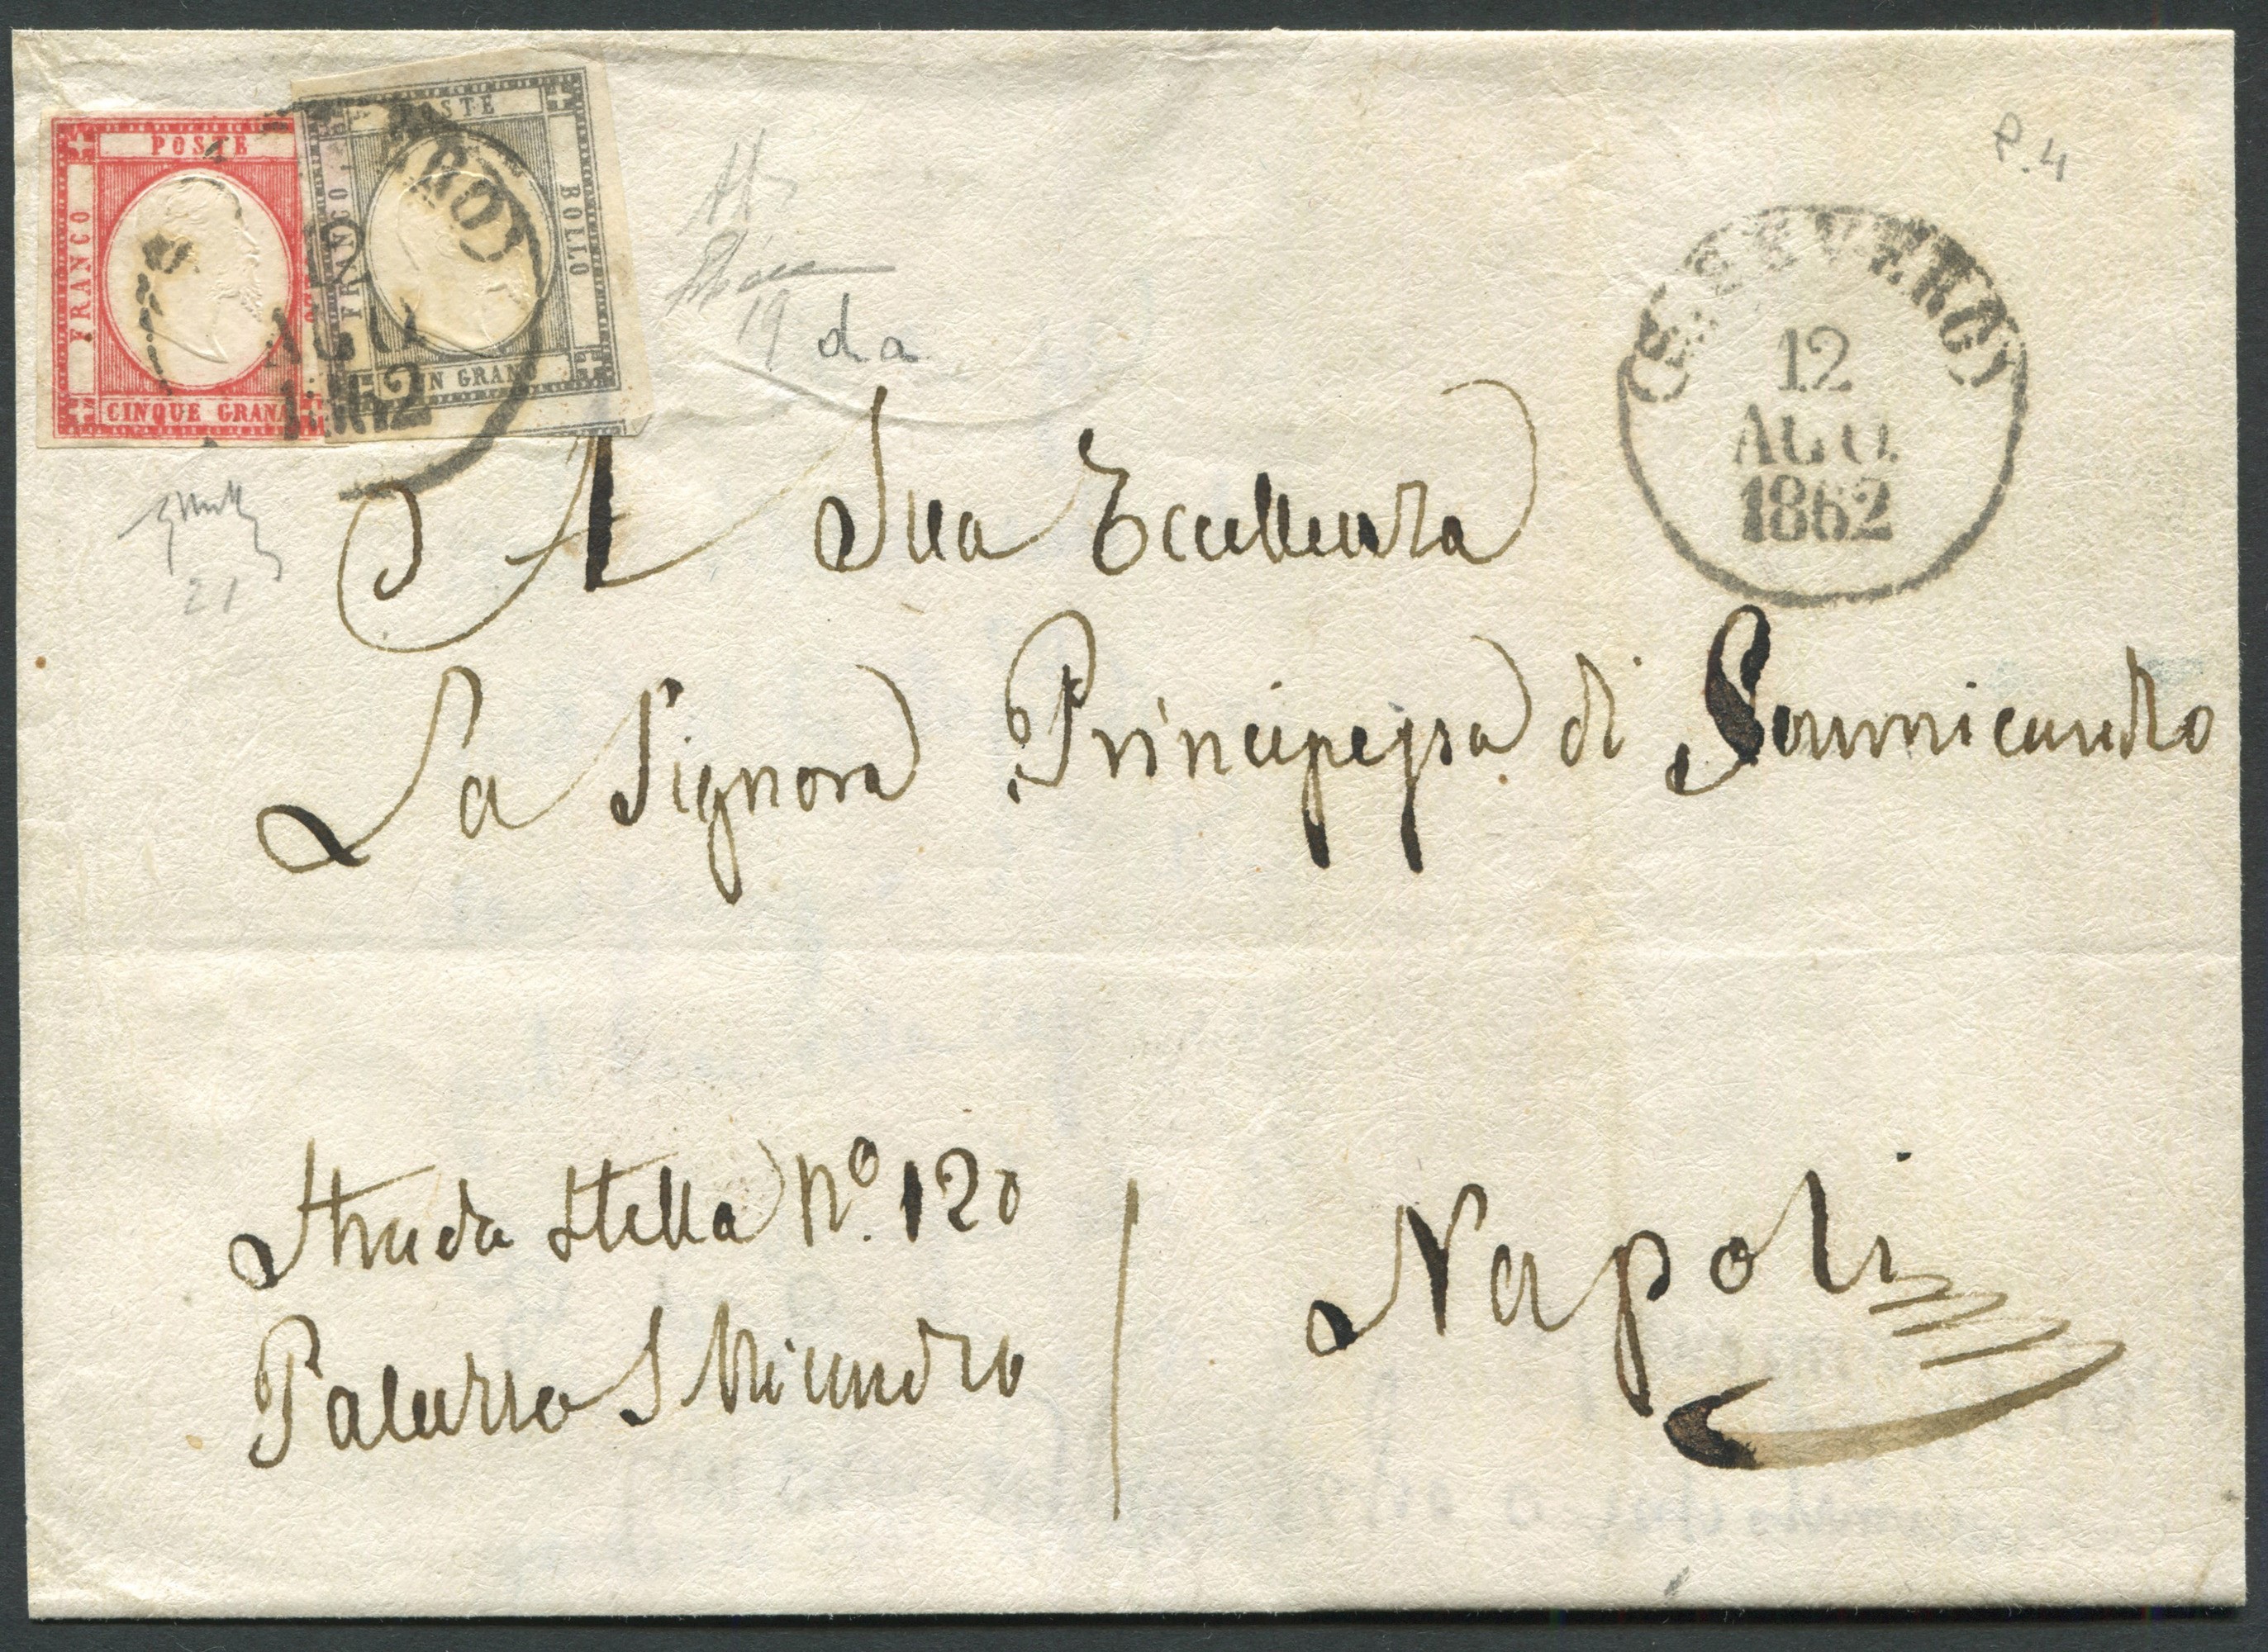 POSTE
FRANCO
CINQUE GRANA
POSTE
FRANCO
BOLLO
UN GRANO
12
AGO
1862
P.4
(S. SEVERO)
12
AGO.
1862
19
da
21
A Sua Eccellenza
La Signora Principessa di Sannicandro
Strada Stella N.º 120
Palazzo S Nicandro
Napoli